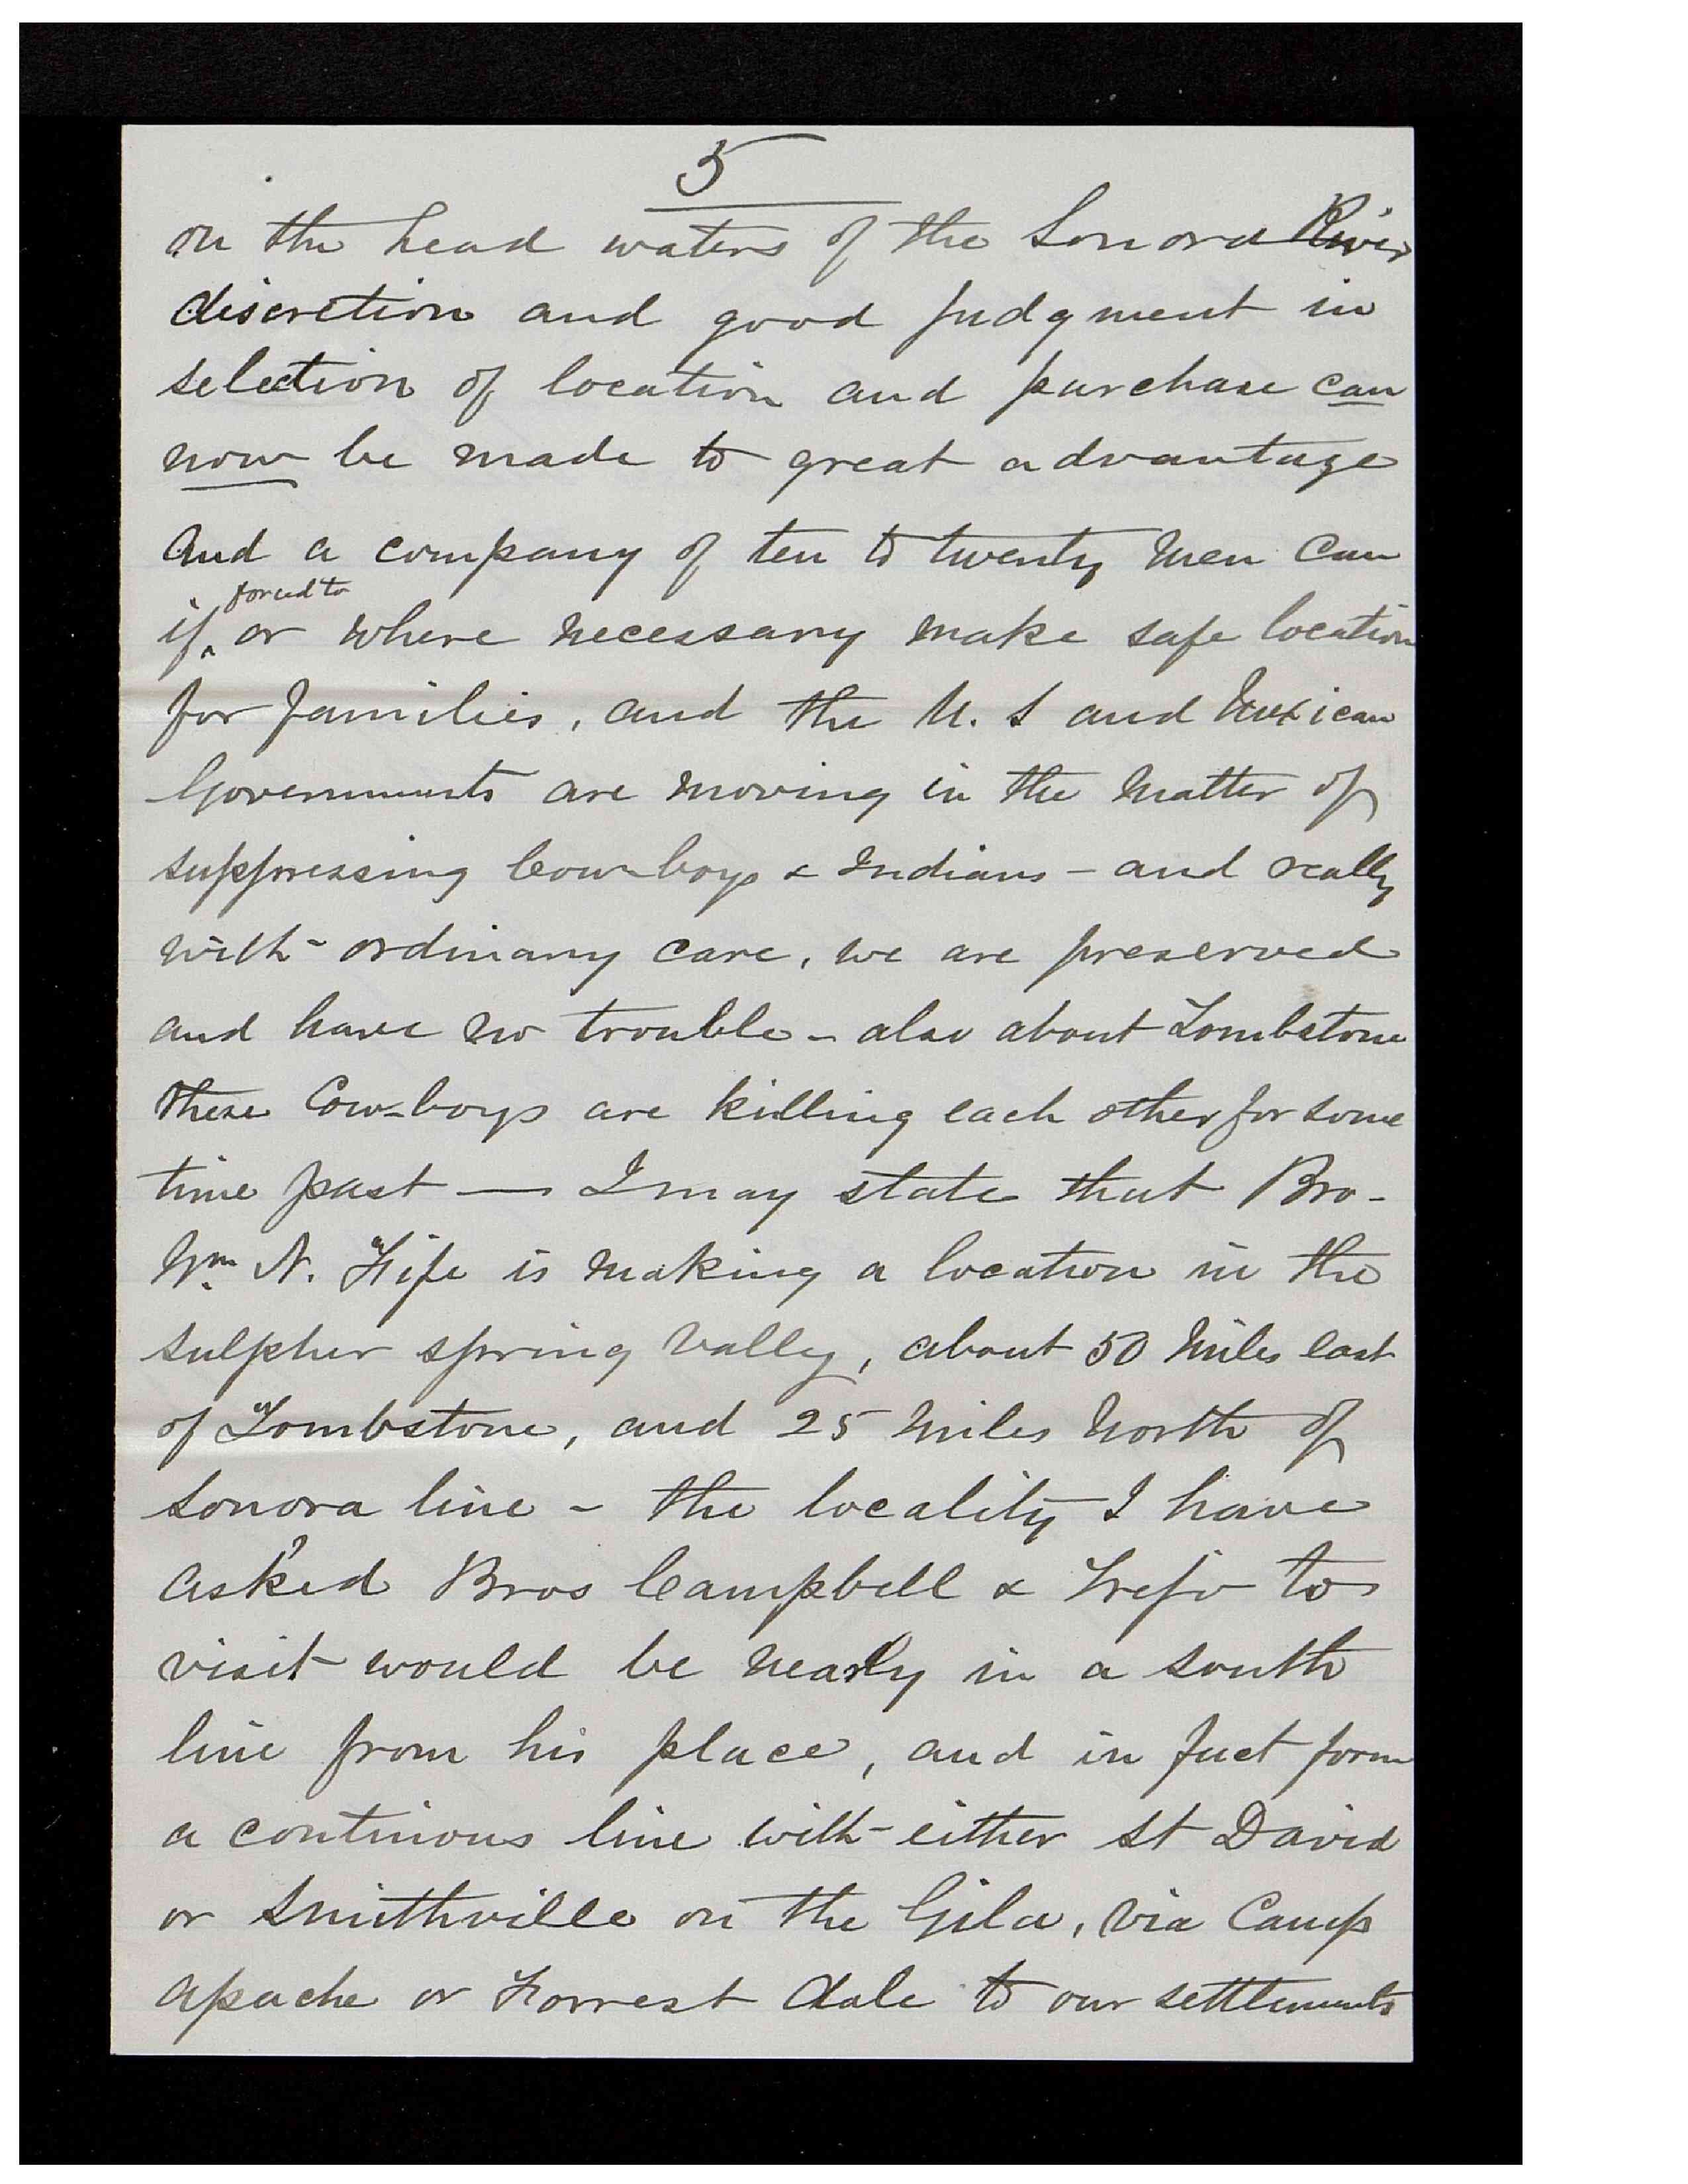 5
on the head waters of the Sonora River
discretion and good judgment in
selection of location and purchase can
now be made to great advantage
and a company of ten to twenty men can
forced to
if ‸ or where necessary make safe location
for families, and the U. S and Mexican
Governments are moving in the matter of
suppressing Cow-boys & Indians - and really
with ordinary care, we are preserved
and have no trouble - also about Tombstone
these Cow-boys are killing each other for some
time past — I may state that Bro-
Wm N. Fife is making a location in the
sulpher spring vally, about 50 miles east
of Tombstone, and 25 miles north of
Sonora line - the locality I have
ask'ed Bros Campbell & Trejo to
visit would be nearly in a south
line from his place, and in fact form
a continous line with either St David
or Smithville on the Gila, via Camp
apache or Forrest dale to our settlements